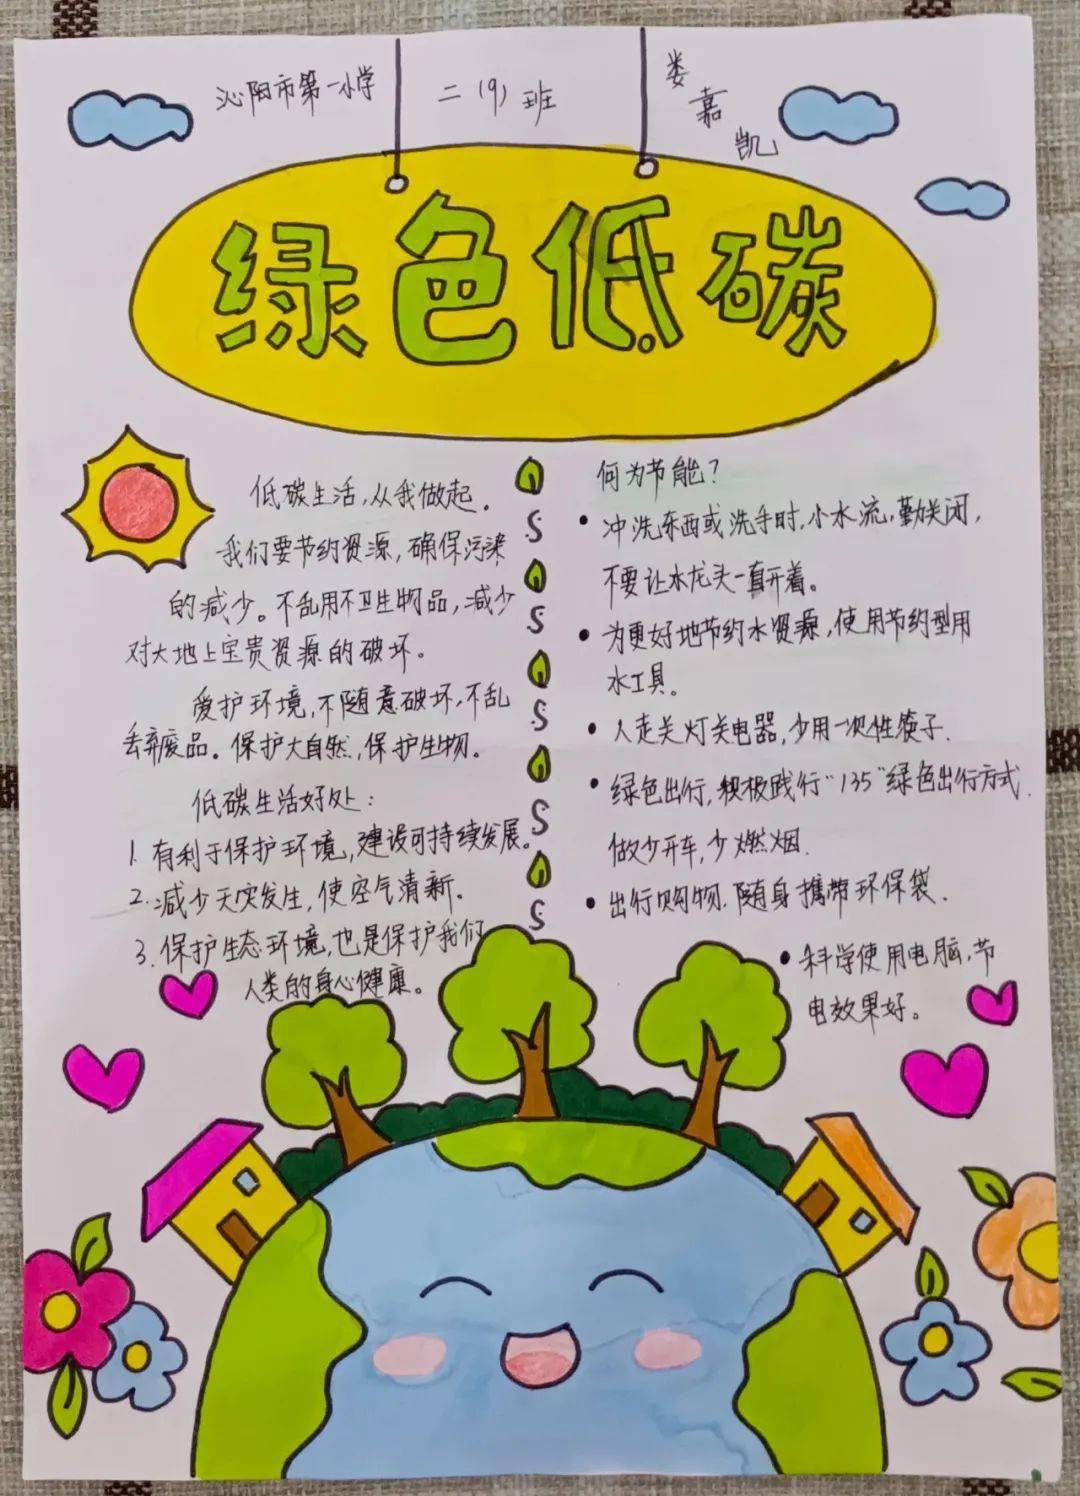 沁阳市第一小学 二(9)班 娄嘉凯
绿色低碳
低碳生活,从我做起.
我们要节约资源,确保污染
的减少。不乱用不卫生物品,减少
对大地上宝贵资源的破坏。
爱护环境,不随意破坏,不乱
丢弃废品。保护大自然,保护生物。
低碳生活好处:
1.有利于保护环境,建设可持续发展。
2.减少天灾发生,使空气清新.
3.保护生态环境,也是保护我们
人类的身心健康。
何为节能?
•冲洗东西或洗手时,小水流,勤关闭,
不要让水龙头一直开着。
•为更好地节约水资源,使用节约型用
水工具。
•人走关灯关电器,少用一次性筷子.
•绿色出行,积极践行“135”绿色出行方式.
做少开车,少燃烟.
•出行购物.随身携带环保袋.
•科学使用电脑,节
电效果好。